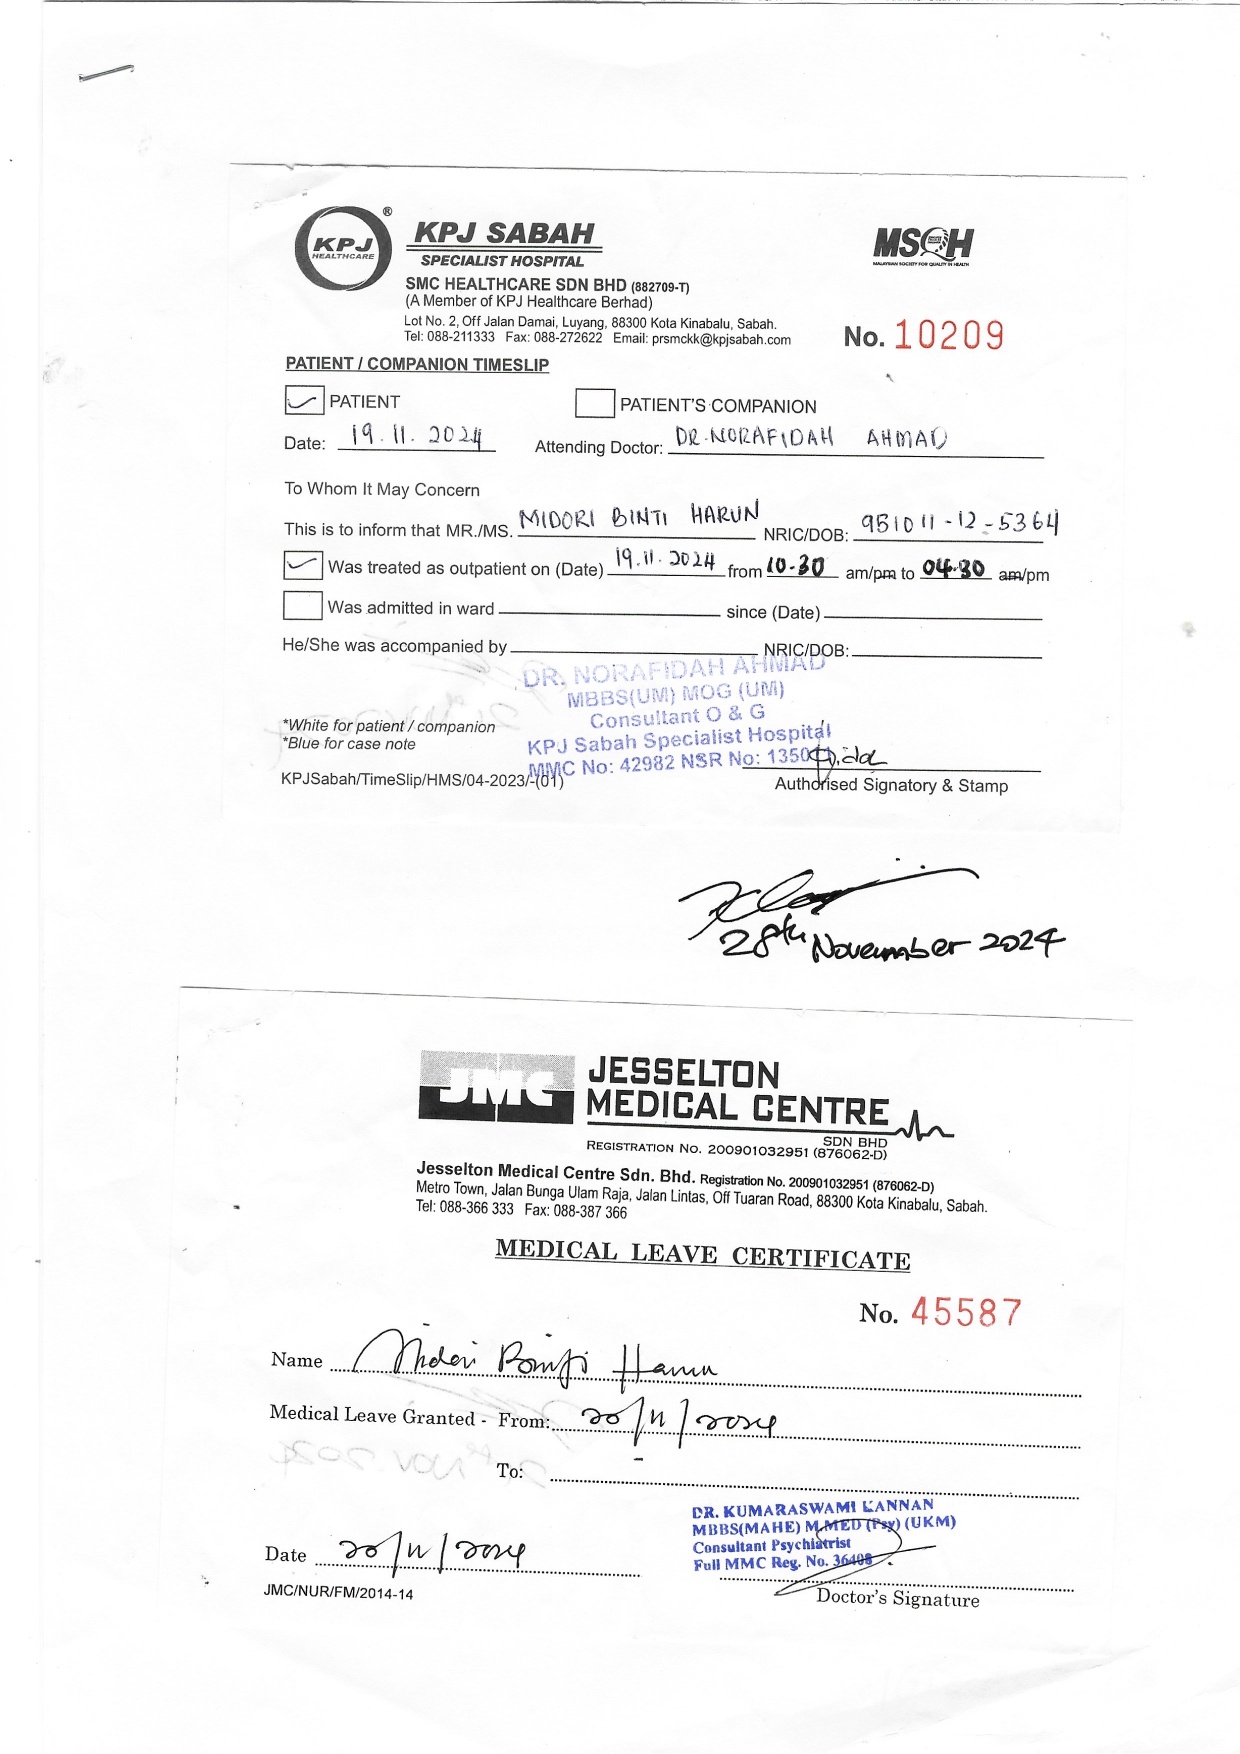 KPJ
HEALTHCARE
®
KPJ SABAH
SPECIALIST HOSPITAL
MSQH
MALAYSIAN SOCIETY FOR QUALITY IN HEALTH
SMC HEALTHCARE SDN BHD (882709-T)
(A Member of KPJ Healthcare Berhad)
Lot No. 2, Off Jalan Damai, Luyang, 88300 Kota Kinabalu, Sabah.
Tel: 088-211333 Fax: 088-272622 Email: prsmckk@kpjsabah.com
No. 10209
PATIENT / COMPANION TIMESLIP
PATIENT PATIENT'S COMPANION
Date: 19.11.2024 Attending Doctor: DR.NORAFIDAH AHMAD
To Whom It May Concern
This is to inform that MR./MS. MIDORI BINTI HARUN NRIC/DOB: 951011-12-5364
Was treated as outpatient on (Date) 19.11.2024 from 10.30 am/pm to 04.30 am/pm
Was admitted in ward since (Date)
He/She was accompanied by NRIC/DOB:
DR. NORAFIDAH AHMAD
MBBS(UM) MOG (UM)
Consultant O & G
KPJ Sabah Specialist Hospital
MMC No: 42982 NSR No: 1350
*White for patient / companion
*Blue for case note
KPJSabah/TimeSlip/HMS/04-2023/-(01)
Authorised Signatory & Stamp
28th November 2024
JMC
JESSELTON
MEDICAL CENTRE
SDN BHD
REGISTRATION No. 200901032951 (876062-D)
Jesselton Medical Centre Sdn. Bhd. Registration No. 200901032951 (876062-D)
Metro Town, Jalan Bunga Ulam Raja, Jalan Lintas, Off Tuaran Road, 88300 Kota Kinabalu, Sabah.
Tel: 088-366 333 Fax: 088-387 366
MEDICAL LEAVE CERTIFICATE
No. 45587
Name Midori Binti Harun
Medical Leave Granted - From: 20/11/2024
To:
DR. KUMARASWAMI KANNAN
MBBS(MAHE) M.MED (Psy) (UKM)
Consultant Psychiatrist
Full MMC Reg. No. 36408
Date 20/11/2024
JMC/NUR/FM/2014-14
Doctor's Signature